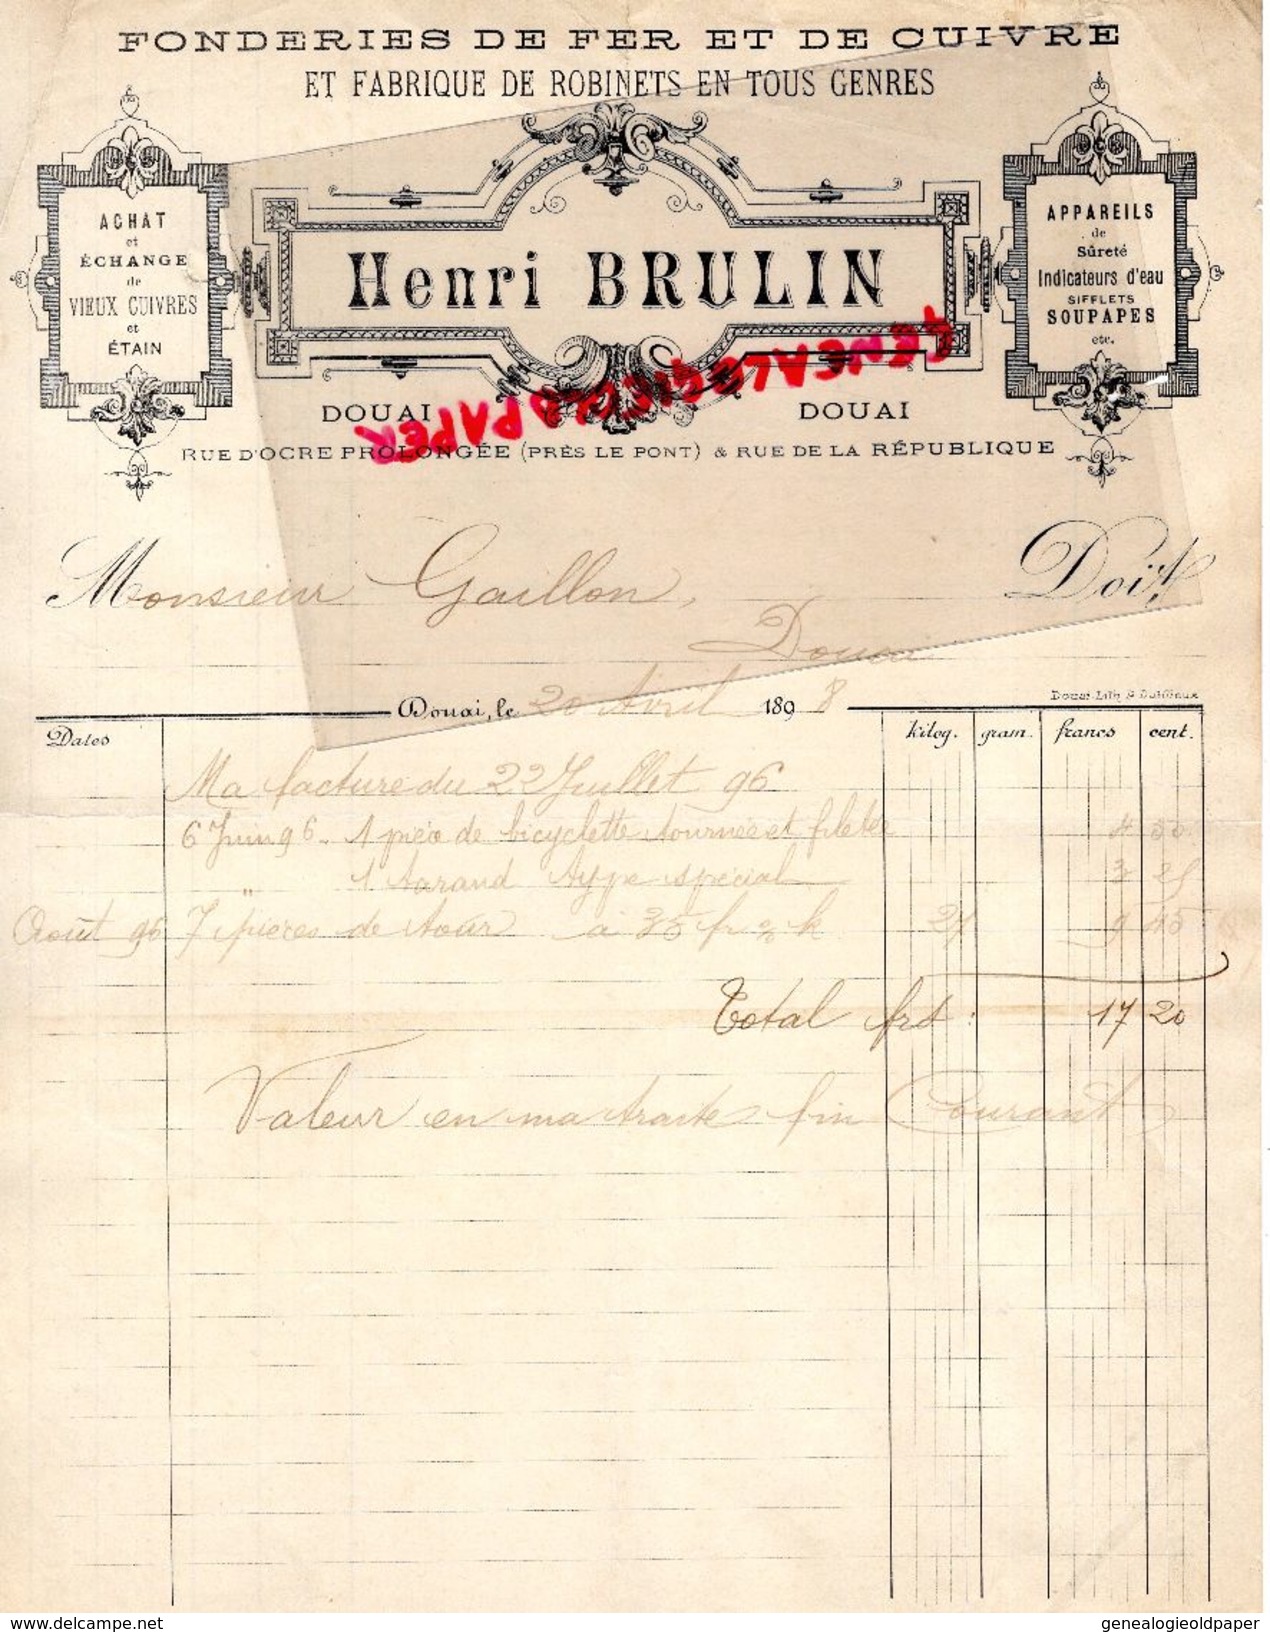 FONDERIES DE FER ET DE CUIVRE
ET FABRIQUE DE ROBINETS EN TOUS GENRES
ACHAT
et
ÉCHANGE
de
VIEUX CUIVRES
et
ÉTAIN
Henri BRULIN
APPAREILS
de
Sûreté
Indicateurs d'eau
SIFFLETS
SOUPAPES
etc.
GENEALOGIE OLD PAPER
DOUAI DOUAI
RUE D'OCRE PROLONGÉE (PRÈS LE PONT) & RUE DE LA RÉPUBLIQUE
Monsieur Gaillon, Doit
Douai
Douai, le 20 Avril 1898
Douai-Lith.
Dates kilog. gram. francs cent.
Ma facture du 22 Juillet 96
6 Juin 96. 1 pièce de bicyclette tournée et filetée 4 50
" 1 type spécial 3 25
Août 96 7 pièces de à 35 fr % k 27 9 45
Total frs : 17 20
Valeur en ma traite fin Courant
www.delcampe.net
genealogieoldpaper